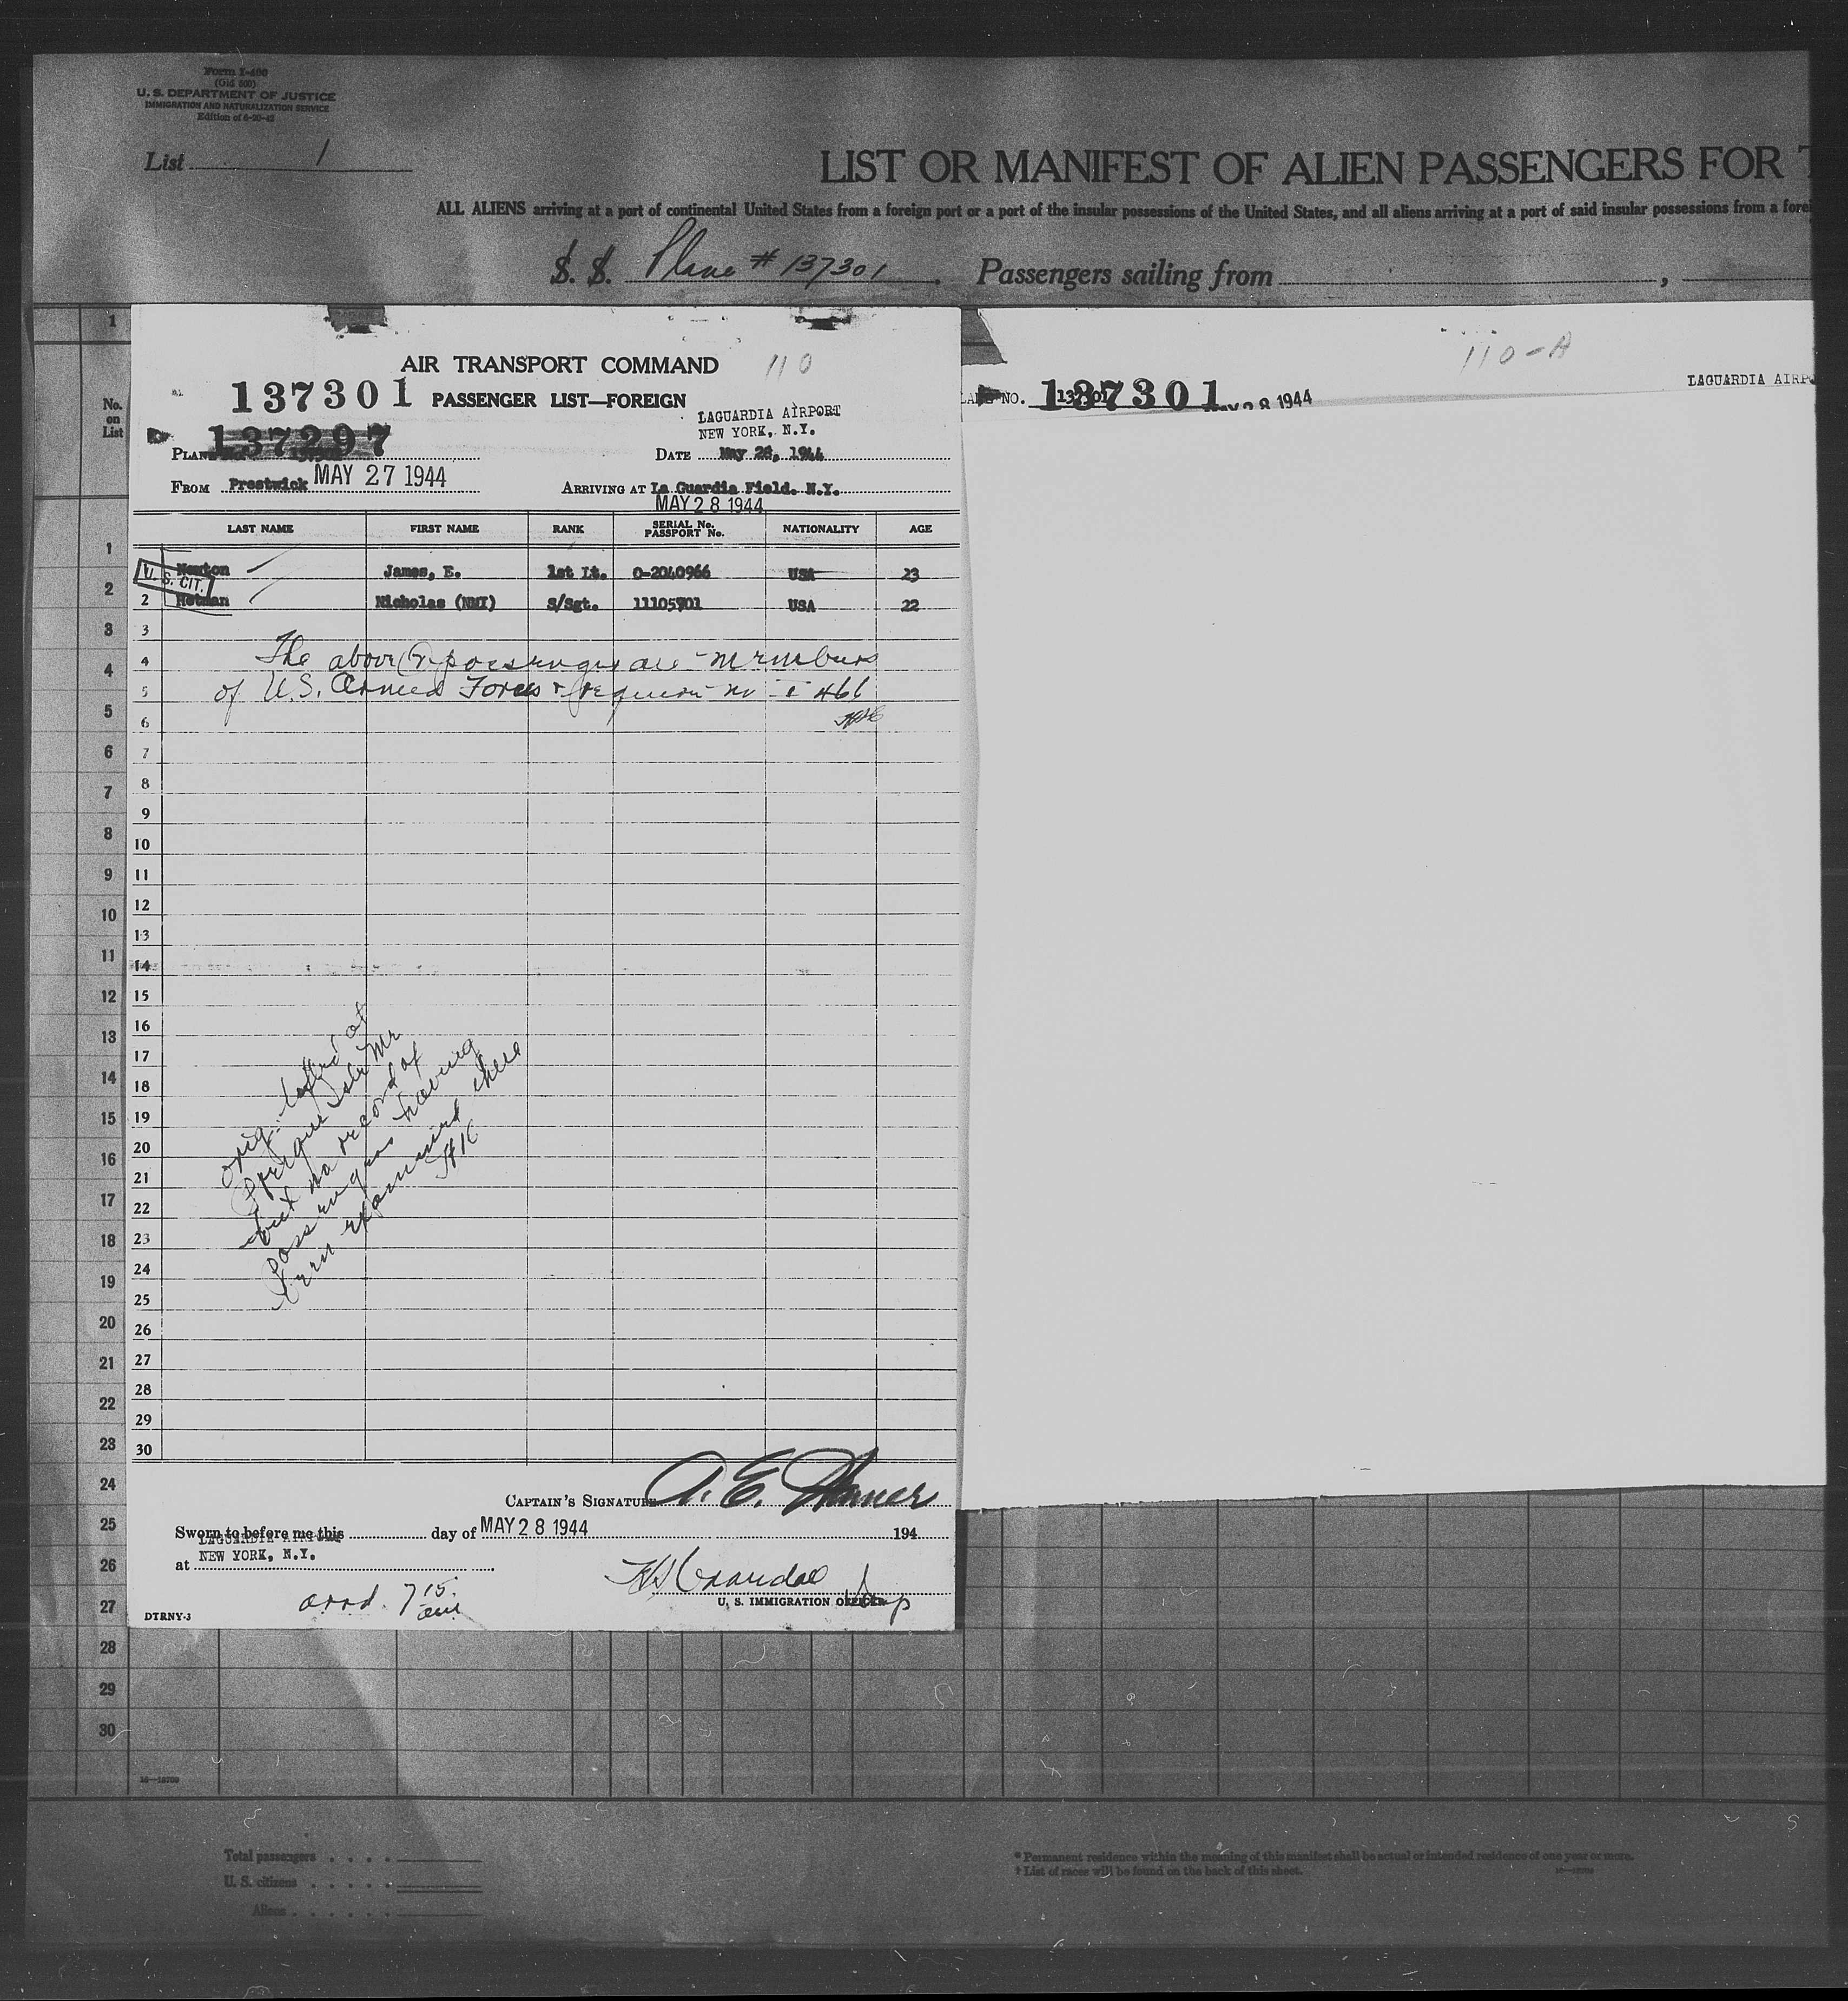 Form I-400
(Old 500)
U. S. DEPARTMENT OF JUSTICE
IMMIGRATION AND NATURALIZATION SERVICE
Edition of 6-20-42
List 1
LIST OR MANIFEST OF ALIEN PASSENGERS FOR T
ALL ALIENS arriving at a port of continental United States from a foreign port or a port of the insular possessions of the United States, and all aliens arriving at a port of said insular possessions from a forei
S. S. Plane # 137301. Passengers sailing from ,
No. on List
AIR TRANSPORT COMMAND 110
137301 PASSENGER LIST—FOREIGN
LAGUARDIA AIRPORT
NEW YORK, N.Y.
137297
DATE May 28, 1944
FROM Prestwick MAY 27 1944 ARRIVING AT La Guardia Field. N.Y.
MAY 28 1944
LAST NAME FIRST NAME RANK SERIAL No. PASSPORT No. NATIONALITY AGE
1 Newton James, E. 1st Lt. O-2040966 USA 23
U. S. CIT.
2 Hetman Nicholas (NMI) S/Sgt. 11105901 USA 22
3
4 The above (2) passengers are members
5 of U.S. Armed Forces & require no I 466
6
7
8
9
10
11
12
13
14
15
16
17
18
19
20
21
22
23
24
25
26
27
28
29
30
orig. at
Presque Isle Me
but no record of
Passengers having
been examined there
CAPTAIN'S SIGNATURE A. E.
Sworn to before me this day of MAY 28 1944 194
LAGUARDIA AIRPORT
at NEW YORK, N.Y.
HS Crandall
U. S. IMMIGRATION OFFICER
Insp
arrd. 7 15 am
DTRNY-3
110-A
NO. 137301 MAY 28 1944
LAGUARDIA AIRPO
1
2
3
4
5
6
7
8
9
10
11
12
13
14
15
16
17
18
19
20
21
22
23
24
25
26
27
28
29
30
Total passengers
U. S. citizens
Aliens
* Permanent residence within the meaning of this manifest shall be actual or intended residence of one year or more.
† List of races will be found on the back of this sheet.